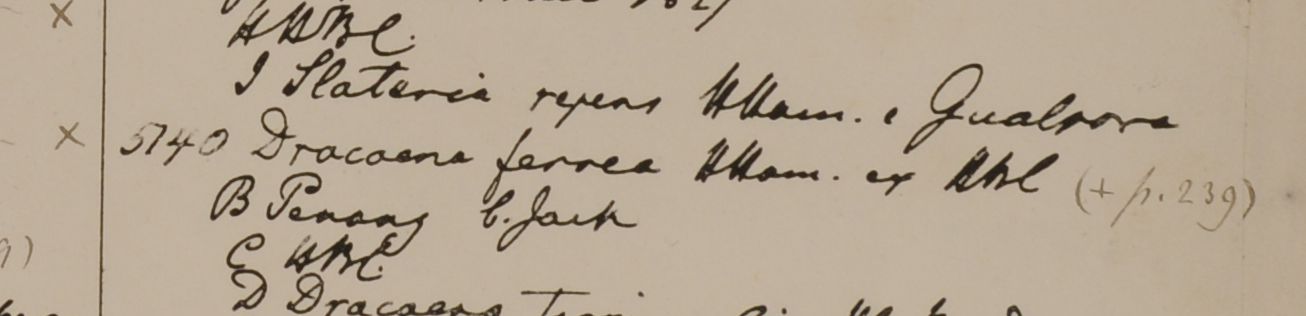 1827
H HBC.
I Slateria repens HHam. e Gualpora
5140 Dracaena ferrea HHam. ex HBC (+ p. 239)
B Penang C. Jack
C HBC.
D Dracaena